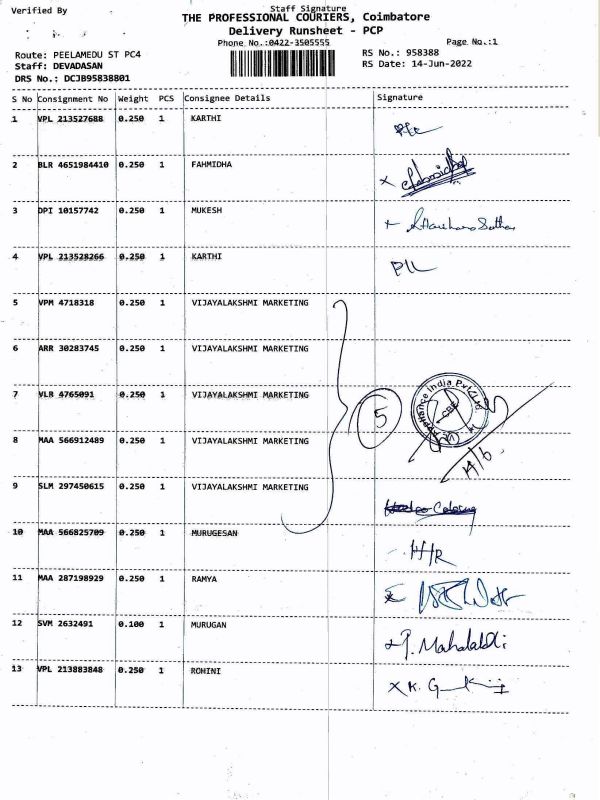 Verified By
Staff Signature
THE PROFESSIONAL COURIERS, Coimbatore
Delivery Runsheet - PCP
Phone No.:0422-3505555
Page No.:1
Route: PEELAMEDU ST PC4
RS No.: 958388
Staff: DEVADASAN
RS Date: 14-Jun-2022
DRS No.: DCJB95838801
S No Consignment No Weight PCS Consignee Details Signature
1 VPL 213527688 0.250 1 KARTHI
2 BLR 4651984410 0.250 1 FAHMIDHA
3 DPI 10157742 0.250 1 MUKESH
4 VPL 213528266 0.250 1 KARTHI
5 VPM 4718318 0.250 1 VIJAYALAKSHMI MARKETING
6 ARR 30283745 0.250 1 VIJAYALAKSHMI MARKETING
7 VLR 4765091 0.250 1 VIJAYALAKSHMI MARKETING
5
Appliance India Pvt Ltd
CBE
8 MAA 566912489 0.250 1 VIJAYALAKSHMI MARKETING
9 SLM 297450615 0.250 1 VIJAYALAKSHMI MARKETING
10 MAA 566825709 0.250 1 MURUGESAN
11 MAA 287198929 0.250 1 RAMYA
12 SVM 2632491 0.100 1 MURUGAN
P. Mahalakshmi
13 VPL 213883848 0.250 1 ROHINI
x K.